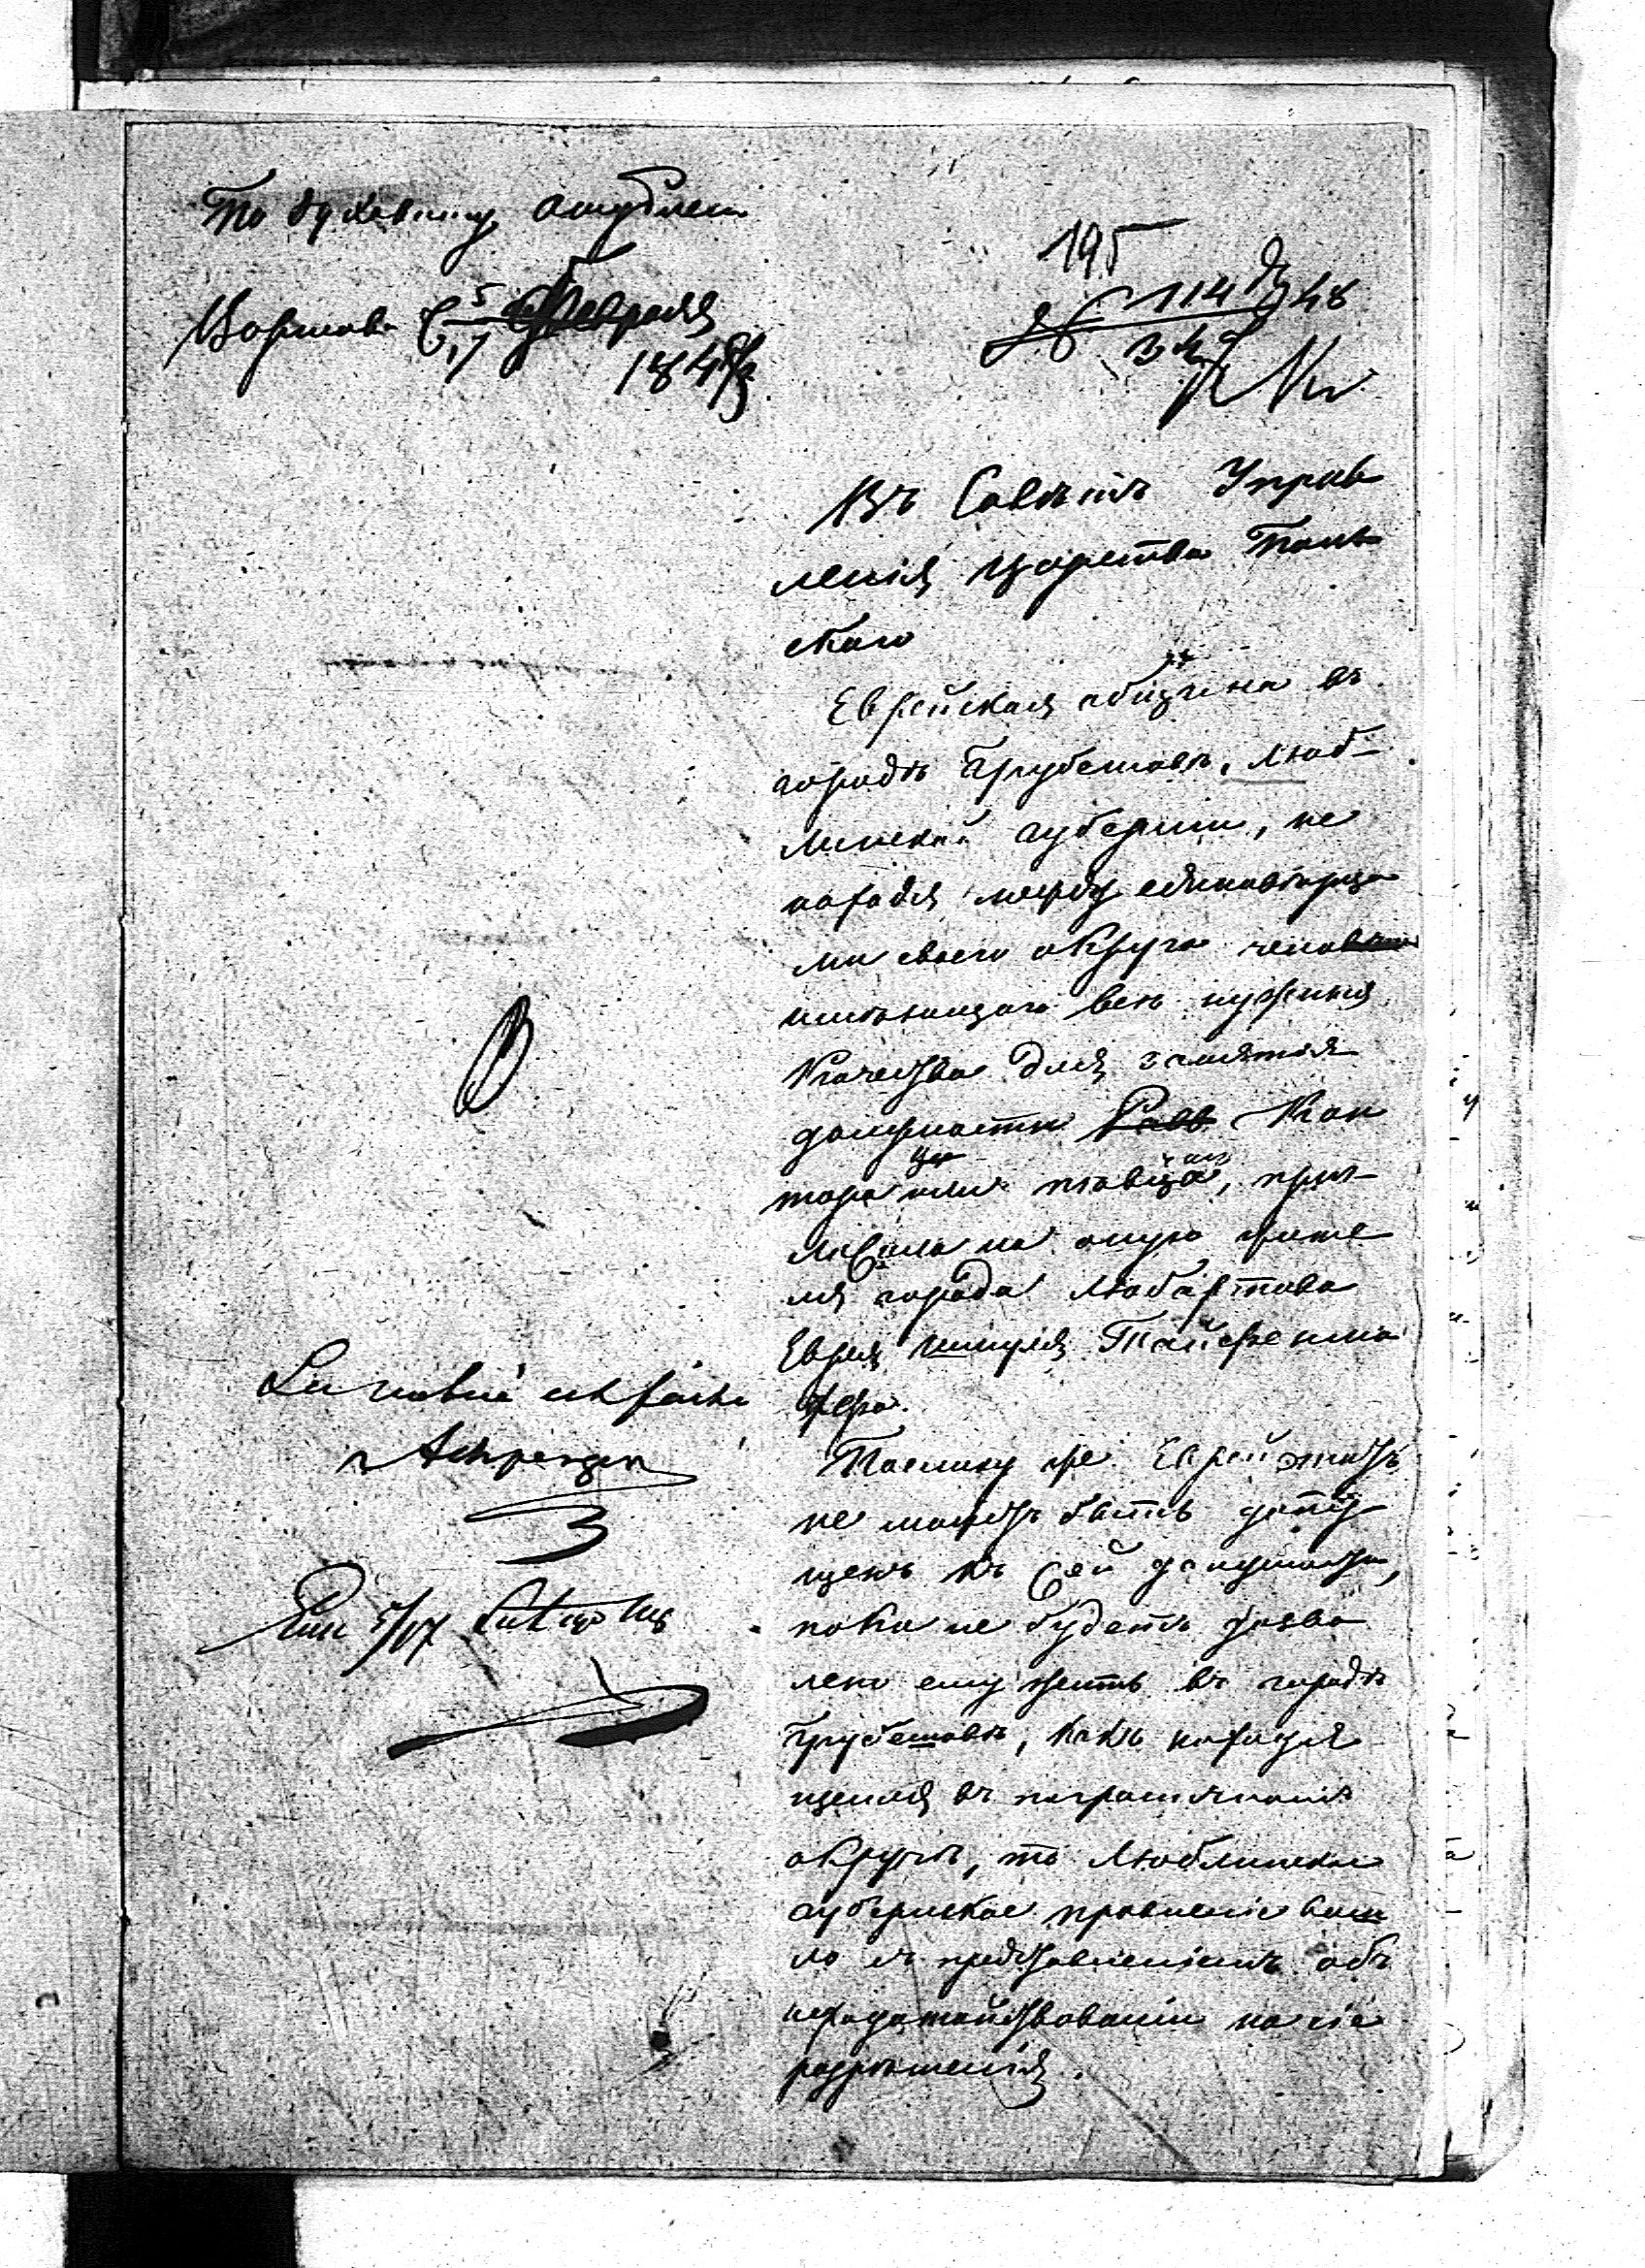 По духовному отдѣлен.
Варшава 5/17 Февраля
1848
195
114 48
Въ Совѣтъ Управ
ленія Царства Поль
скаго
Еврейская община въ
городѣ Грубешовѣ, Люб-
линской Губерніи, не
находя между единовѣрца
ми своего округа челов
имѣющаго всѣ нужныя
качества для занятія
должности Кан
тора или пѣвца, при-
гласила на оную жите
ля города Любартова
Еврея Шмуля
фера.
Поелику же Еврей этотъ
не можетъ быть допу
щенъ къ сей должности,
пока не будетъ дозво
лено ему жить въ городѣ
Грубешовѣ, какъ находя
щемся въ пограничномъ
округѣ, то Люблинское
Губернское правленіе вош
ло съ представленіемъ объ
исходатайствованіи на сіе
разрѣшенія.